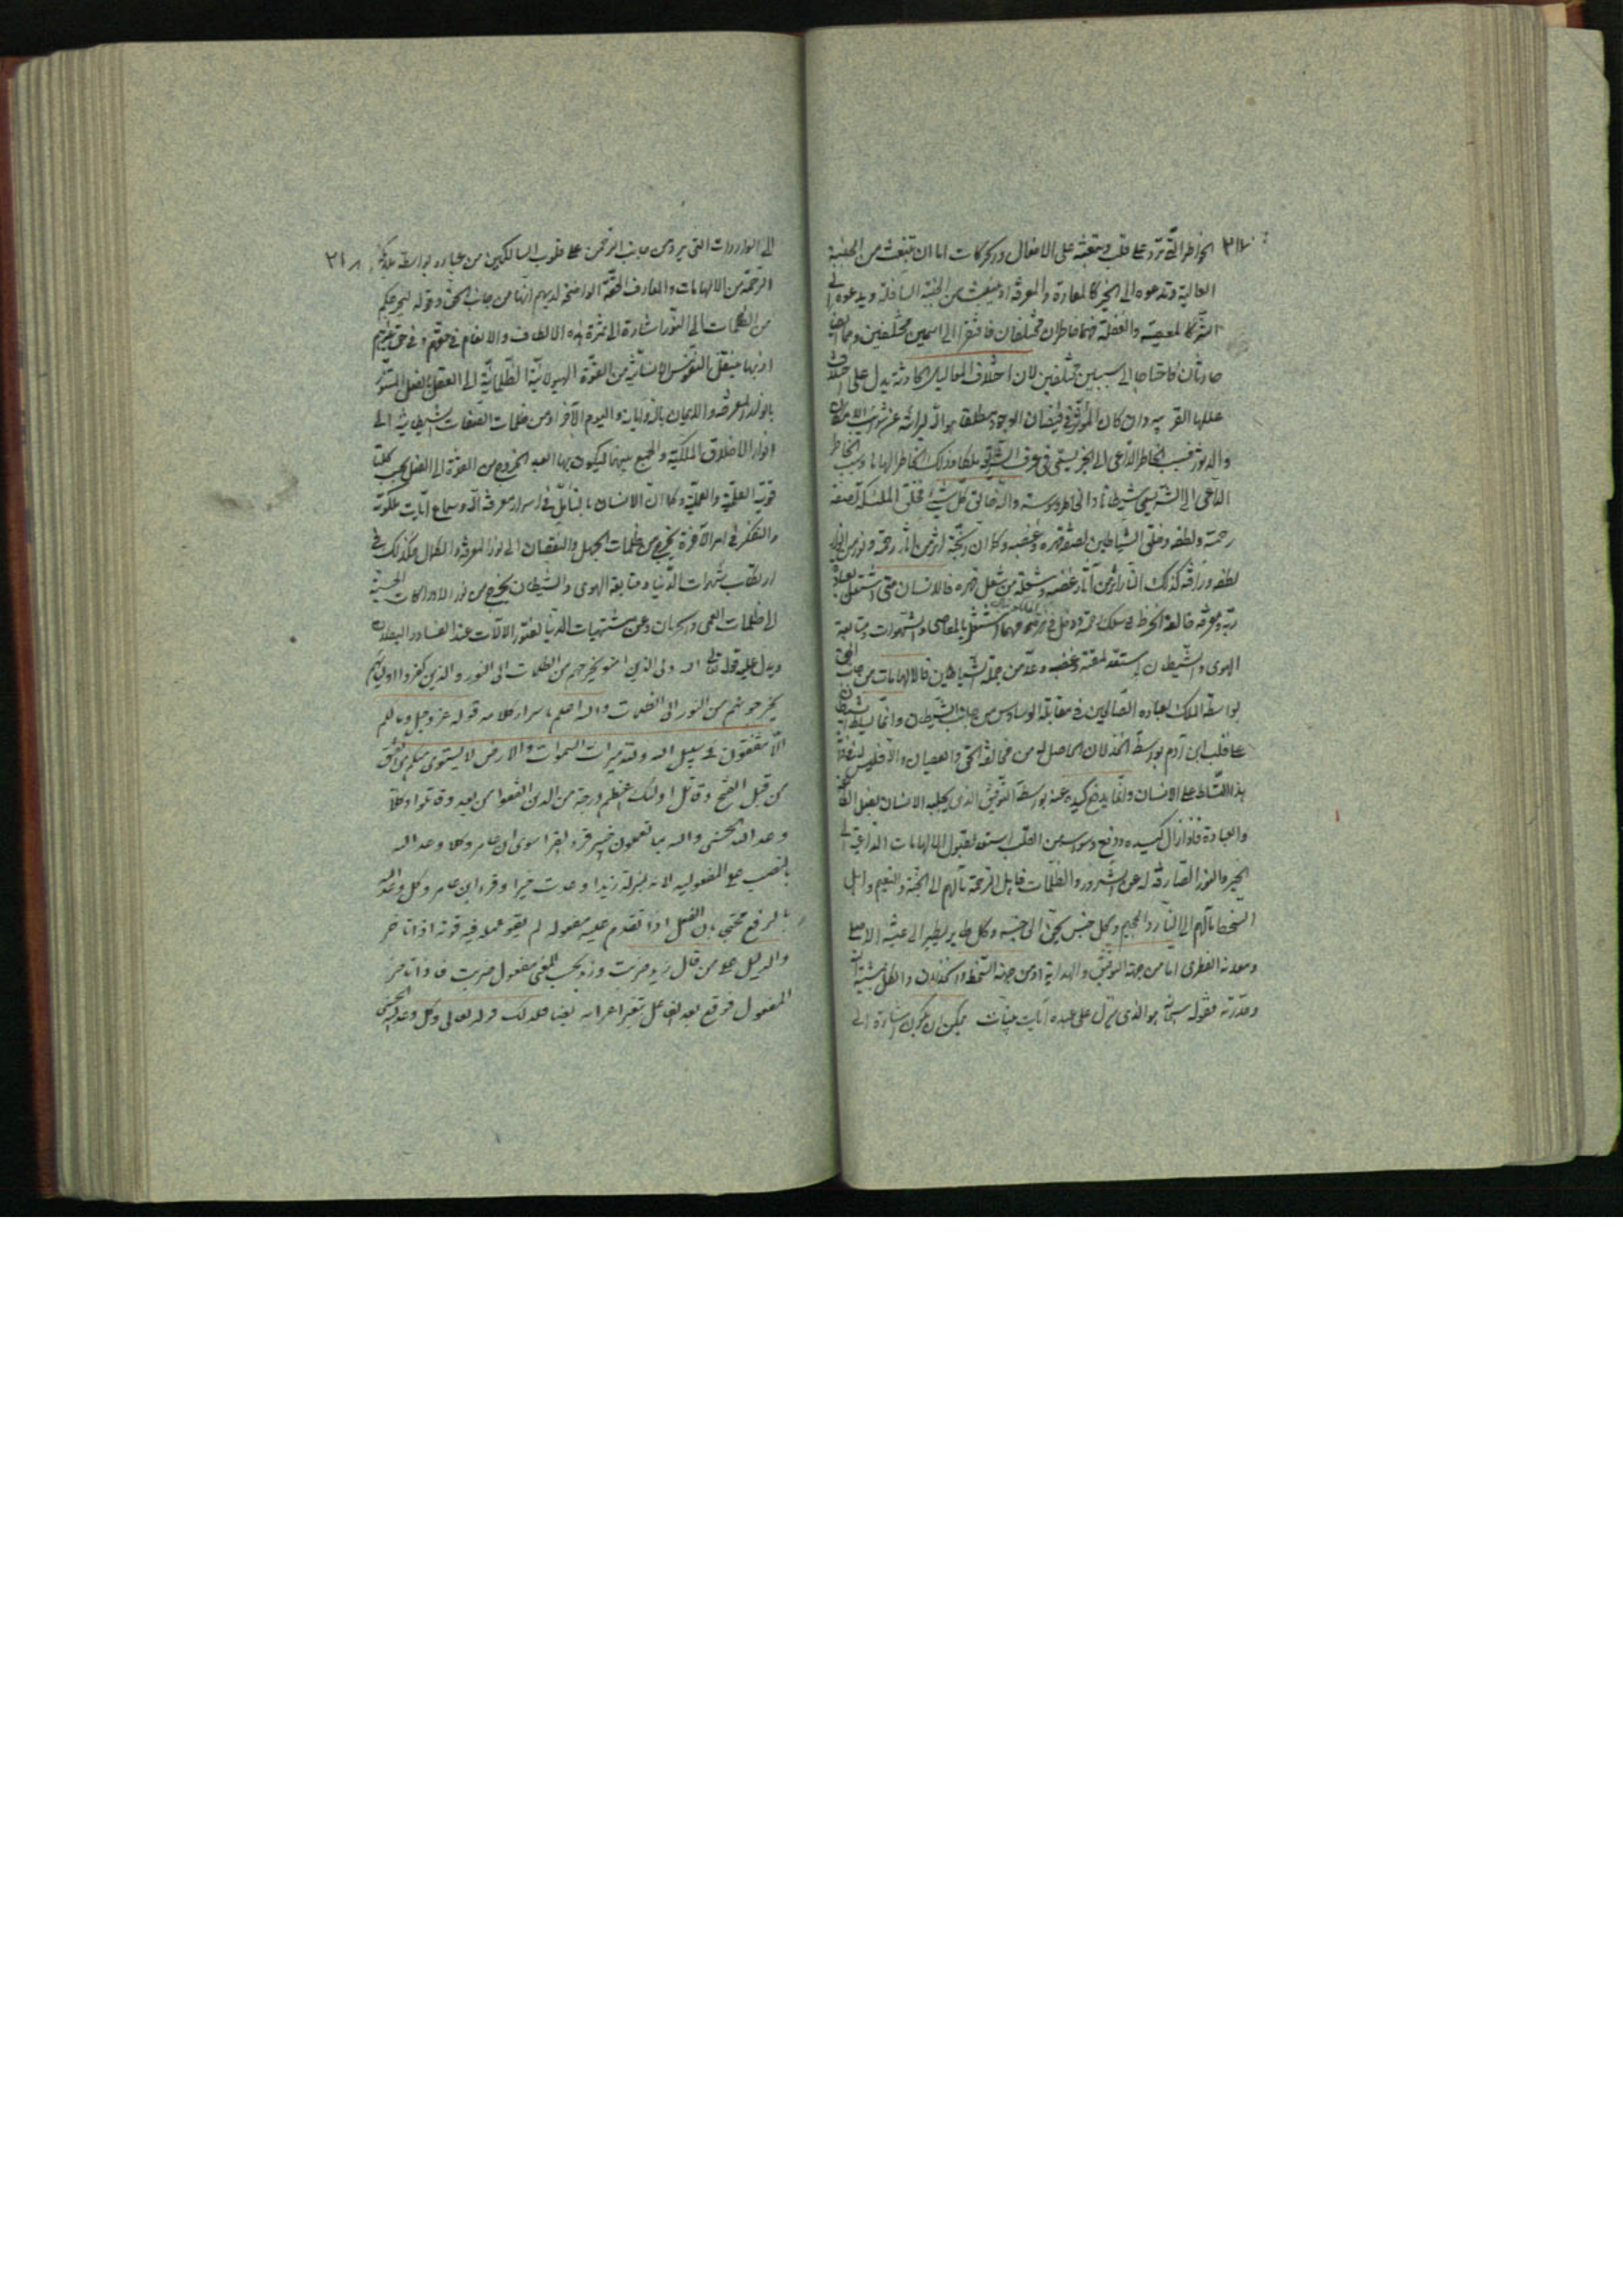 ٣١٧ الخواطر الّتى ترد على قلب وتبعثه على الافعال والحركات اما ان تنبعث من الجنبة
العالية وتدعوه الى الخير كالعبادة والمعرفة او تنبعث من الجنبة السافلة ويدعوه الى
الشر كالمعصية والغفلة فهما خاطران مختلفان فافتقرا الى اسمين مختلفين وهما ايضا
حادثان فاحتاجا الى سببين مختلفين لان اختلاف المعاليل الحادثة يدل على اختلاف
عللها القريبة وان كان المؤثر فى فيضان الوجود مطلقا هو الله لبرائته عن شوائب الامكان
والدثور فسبب الخاطر الداعى الى الخير يسمى فى عرف الشريعة ملكا وذلك الخاطر الهاما وسبب الخاطر
الداعى الى الشر يسمى شيطانا والخاطر وسوسة والله خالق كل شىء فخلق الملئكة لصفة
رحمته ولطفه وخلق الشياطين لصفة قهره وغضبه وكما ان الجنة اثر من آثار رحمته ونور من انوار
لطفه ورأفته كذلك النار اثر من آثار غضبه وشعلة من شعل قهره فالانسان متى اشتغل بعبادة
ربه ومعرفة خالقه انخرط فى سلك رحمته ودخل فى مهما اشتغل بالمعاصى والشهوات ومتابعة
الهوى والشيطان استعد لمقته وغضبه وعدّ من جملة الشياطين فالالهامات من جانب الحق
بواسطة الملك لعباده الصالحين فى مقابلة الوساوس من جانب الشيطان وانما يسلط الشيطان
على قلب ابن آدم بواسطة الخذلان الحاصل له من مخالفة الحق والعصيان والا فليس له
هذا التسلط على الانسان وانما يدفع كيده عنه بواسطة التوفيق الذى يجلبه الانسان بفعل الطاعة
والعبادة فاذا زال كيده ودفع وسواسه من القلب استعد لقبول الالهامات الداعية الى
الخير والنور الصارفة له عن الشرور والظلمات فاهل الرحمة مآلهم الى الجنة والنعيم واهل
السخط مآلهم الى النار والجحيم وكل جنس يحنّ الى جنسه وكل طاير يطير الى عشّه الاصلى
ومعدنه الفطرى اما من جهة التوفيق والهداية او من جهة السخط والخذلان والكل بمشيئة الله
وقدرته فقوله سبحانه هو الذى ينزل على عبده آيات بينات يمكن ان يكون اشارة الى
الى الواردات التى يرد من جانب الرحمن على قلوب السالكين من عباده بواسطة ملائكة ٣١٨
الرحمة من الالهامات والمعارف الحقة الواضحة لديهم انها من جانب الحق وقوله ليخرجكم
من الظلمات الى النور اشارة الى ثمرة هذه الالطاف والانعام فى حقهم وفى حق غيرهم
اذ بها ينتقل النفوس الانسانية من القوة الهيولانية الظلمانية الى العقل بالفعل المتنور
بانوار المعرفة والايمان بالله وآياته واليوم الآخر او من ظلمات الصفات الشيطانية الى
انوار الاخلاق الملكية والجمع بينهما ليكون بها العبد الخروج من القوة الى الفعل بحسب كلتا
قوتيه العلمية والعملية وكما ان الانسان بالتأمل فى اسرار معرفة الله وسماع آيات ملكوته
والتفكر فى امر الآخرة يخرج من ظلمات الجهل والنقصان الى نور المعرفة والكمال فكذلك فى
ارتكاب شهوات الدنيا ومتابعة الهوى والشيطان يخرج من نور الادراكات الحسية
الى ظلمات العمى والحرمان وعن مشتهيات الدنيا لفتور الآلات عند الفساد والبطلان
ويدل عليه قوله تعالى الله ولى الذين امنوا يخرجهم من الظلمات الى النور والذين كفروا اوليائهم
يخرجونهم من النور الى الظلمات والله اعلم باسرار كلامه قوله عز وجل وما لكم
الّا تنفقون فى سبيل الله ولله ميراث السموات والارض لا يستوى منكم من انفق
من قبل الفتح وقاتل اولئك اعظم درجة من الذين انفقوا من بعد وقاتلوا وكلا
وعد الله الحسنى والله بما تعملون خبير قرء القراء سوى ابن عامر وكلا وعد الله
بالنصب على المفعولية لانه بمنزلة زيدا وعدت خيرا وقرء ابن عامر وكل وعد الله
بالرفع محتج بان الفعل اذا تقدم عليه مفعوله لم يقو عمله فيه قوته اذا تاخر
والدليل على من قال زيد ضربت وزيد بحسب المعنى مفعول ضربت فاذا تاخر
المفعول فوقع بعد الفاعل تغير اعرابه قوله تعالى وكل وعد الله الحسنى